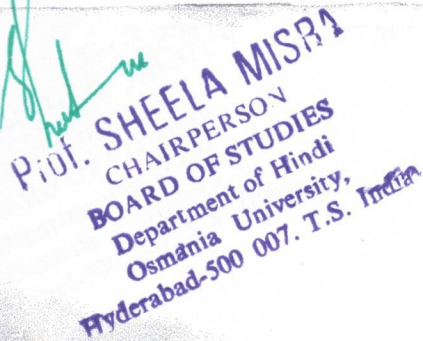 Prof. SHEELA MISRA
CHAIRPERSON
BOARD OF STUDIES
Department of Hindi
Osmania University,
Hyderabad-500 007. T.S. India